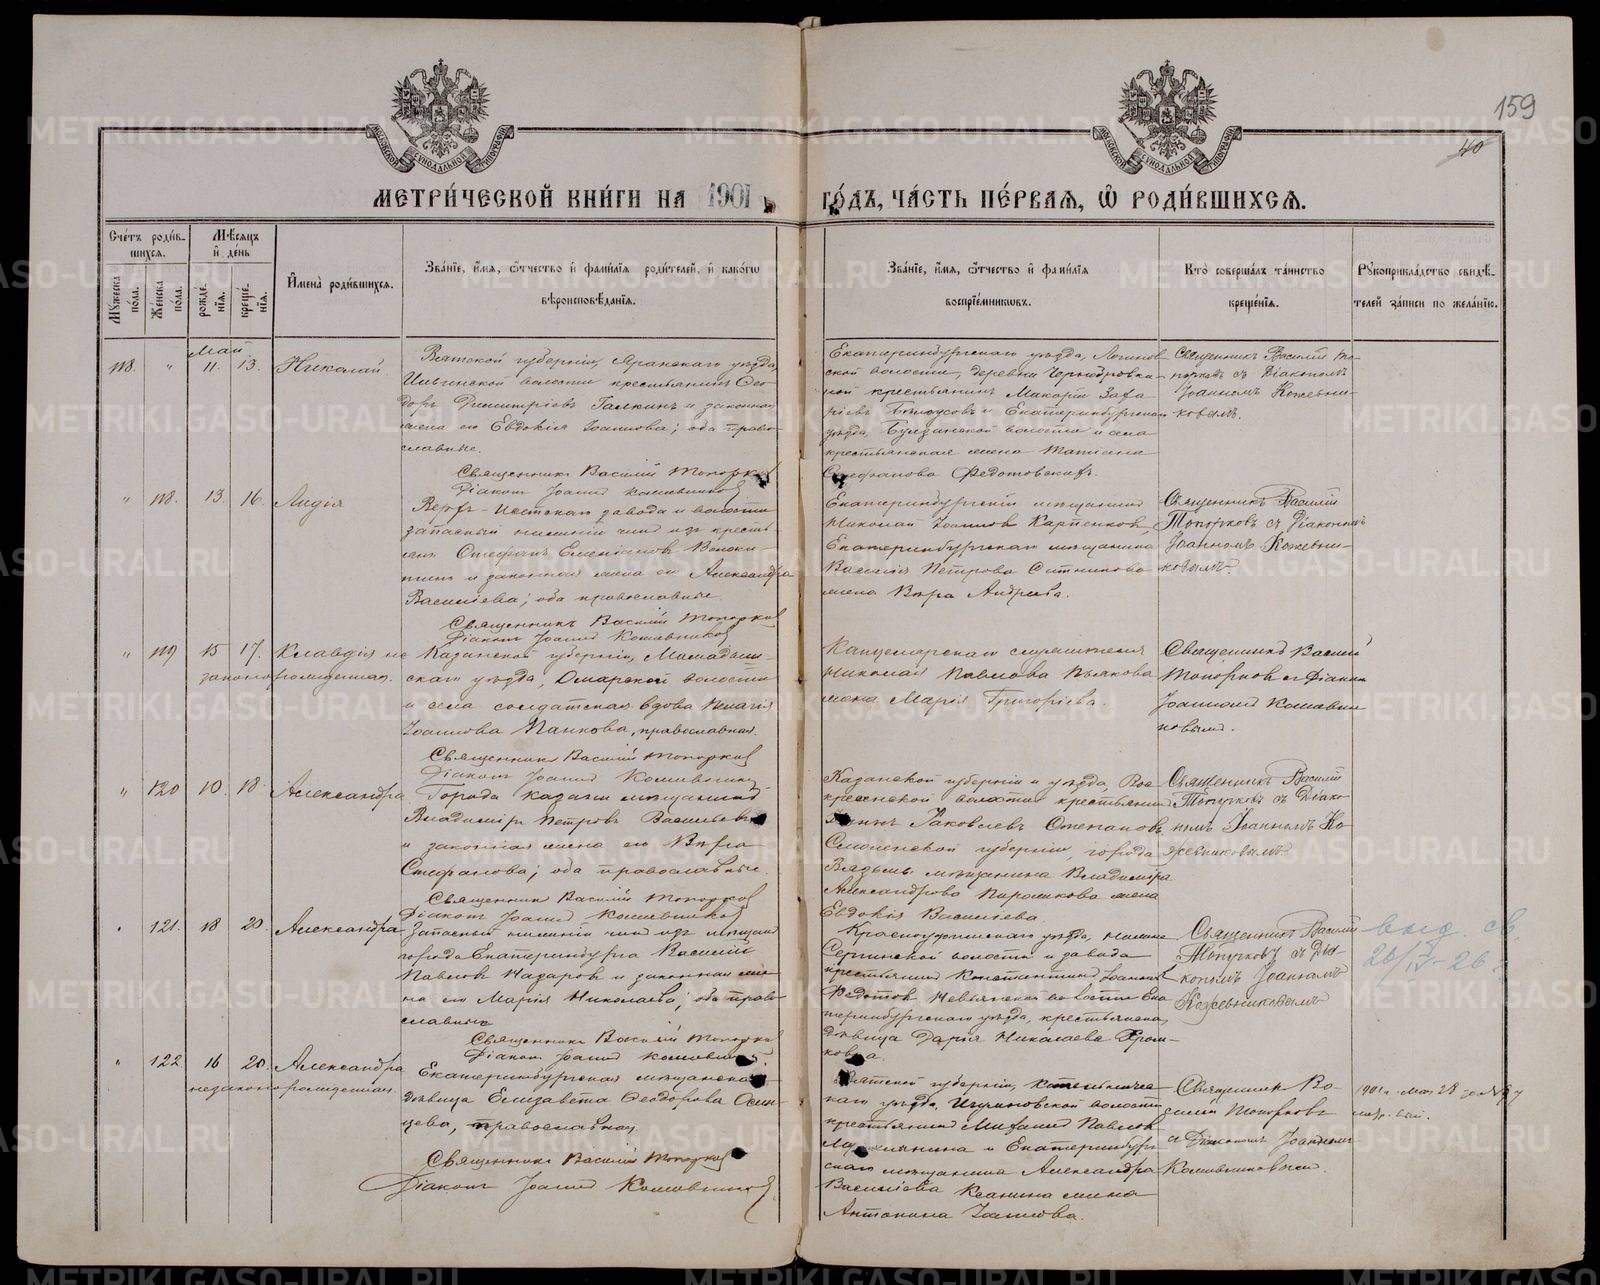 159
40
МЕТРИ́ЧЕСКОЙ КНИ́ГИ НА 1901 ГО́ДЪ, ЧА́СТЬ ПЕ́РВАЯ, Ѡ҆ РОДИ́ВШИХСЯ.
Сче́тъ роди́в-
шихся.
Мѣ́сяцъ
и҆ де́нь
Му́жеска по́ла.
Же́нска по́ла.
рожде́нїя.
креще́нїя.
И҆мена̀ роди́вшихся.
Зва́нїе, и҆́мя, ѻ҆́тчество и҆ фами́лїя роди́телей, и҆ како́гѡ
вѣроисповѣ́данїя.
Зва́нїе, и҆́мя, ѻ҆́тчество и҆ фами́лїя
воспрїе́мниковъ.
Кто̀ соверша́лъ та́инство
креще́нїя.
Рꙋкоприкла́дство свидѣ́-
телей за́писи по жела́нїю.
Май
118. " 11. 13. Николай
Вятской губерніи, Яранскаго уѣзда,
Ильинской волости крестьянинъ Ѳео-
доръ Димитріевъ Галкинъ и законная
жена его Евдокія Іоаннова; оба право-
славные.
Священникъ Василій Топорковъ
Діаконъ Іоаннъ Кожевниковъ
Екатеринбургскаго уѣзда, Логинов-
ской волости, деревни
крестьянинъ Макарій Заха-
ріевъ Бѣлоусовъ и Екатеринбургскаго
уѣзда, волости и села
крестьянская жена Татіана
Стефанова Федотовскихъ.
Священникъ Василій То-
порковъ съ Діакономъ
Іоанномъ Кожевни-
ковымъ.
" 118. 13. 16. Лидія
Верхъ-Исетскаго завода и волости
запасный нижній чинъ изъ кресть-
янъ Стефанъ
и законная жена его Александра
Василіева; оба православные.
Священникъ Василій Топорковъ
Діаконъ Іоаннъ Кожевниковъ
Екатеринбургскій мѣщанинъ
Николай Іоанновъ Карпенковъ,
Екатеринбургскаго мѣщанина
Василія Петрова Ситникова
жена Вѣра Андреева.
Священникъ Василій
Топорковъ съ Діакономъ
Іоанномъ Кожевни-
ковымъ.
" 119 15 17. Клавдія не-
законорожденная.
Казанской губерніи, Мамадыш-
скаго уѣзда, Омарской волости
и села солдатская вдова Пелагія
Іоаннова Панкова, православная.
Священникъ Василій Топорковъ
Діаконъ Іоаннъ Кожевниковъ
Канцелярскаго служителя
Николая Павлова Пьянкова
жена Марія Григоріева.
Священникъ Василій
Топорковъ съ Діакон.
Іоанномъ Кожевни-
ковымъ.
" 120 10. 18. Александра
Города Казани мѣщанинъ
Владиміръ Петровъ Васильевъ
и законная жена его Вѣра
Стефанова; оба православные.
Священникъ Василій Топорковъ
Діаконъ Іоаннъ Кожевниковъ
Казанской губерніи и уѣзда, Вос-
кресенской волости крестьянинъ
Іаковлевъ Степановъ,
Смоленской губерніи, города
Вязьмы мѣщанина Владиміра
Александрова Пирожкова жена
Евдокія Василіева.
Священникъ Василій
Топорковъ съ Діако-
номъ Іоанномъ Ко-
жевниковымъ.
" 121. 18 20. Александра
Запасный нижній чинъ изъ мѣщанъ
города Екатеринбурга Василій
Павловъ Назаровъ и законная же-
на его Марія Николаева; оба право-
славные
Священникъ Василій Топорковъ
Діаконъ Іоаннъ Кожевниковъ
Красноуфимскаго уѣзда, Нижне-
Сергинской волости и завода
крестьянинъ Константинъ Іоанновъ
Федотовъ, Невьянской волости Ека-
теринбургскаго уѣзда, крестьянская
дѣвица Дарія Николаева
Священникъ Василій
Топорковъ съ Діа-
кономъ Іоанномъ
Кожевниковымъ
выд. св.
26/IV-26
" 122 16 20. Александра
незаконорожденная.
Екатеринбургская мѣщанская
дѣвица Елизавета Ѳеодорова Осин-
цева, православная.
Священникъ Василій Топорковъ
Діаконъ Іоаннъ Кожевниковъ
Вятской губерніи, Котельниче-
скаго уѣзда, волости
крестьянинъ Михаилъ Павловъ
и Екатеринбург-
скаго мѣщанина Александра
Василіева жена
Антонина Іоаннова.
Священник Ва-
силій Топорковъ
съ Діакономъ Іоанномъ
Кожевниковымъ.
1901 г. мая 28
METRIKI.GASO-URAL.RU